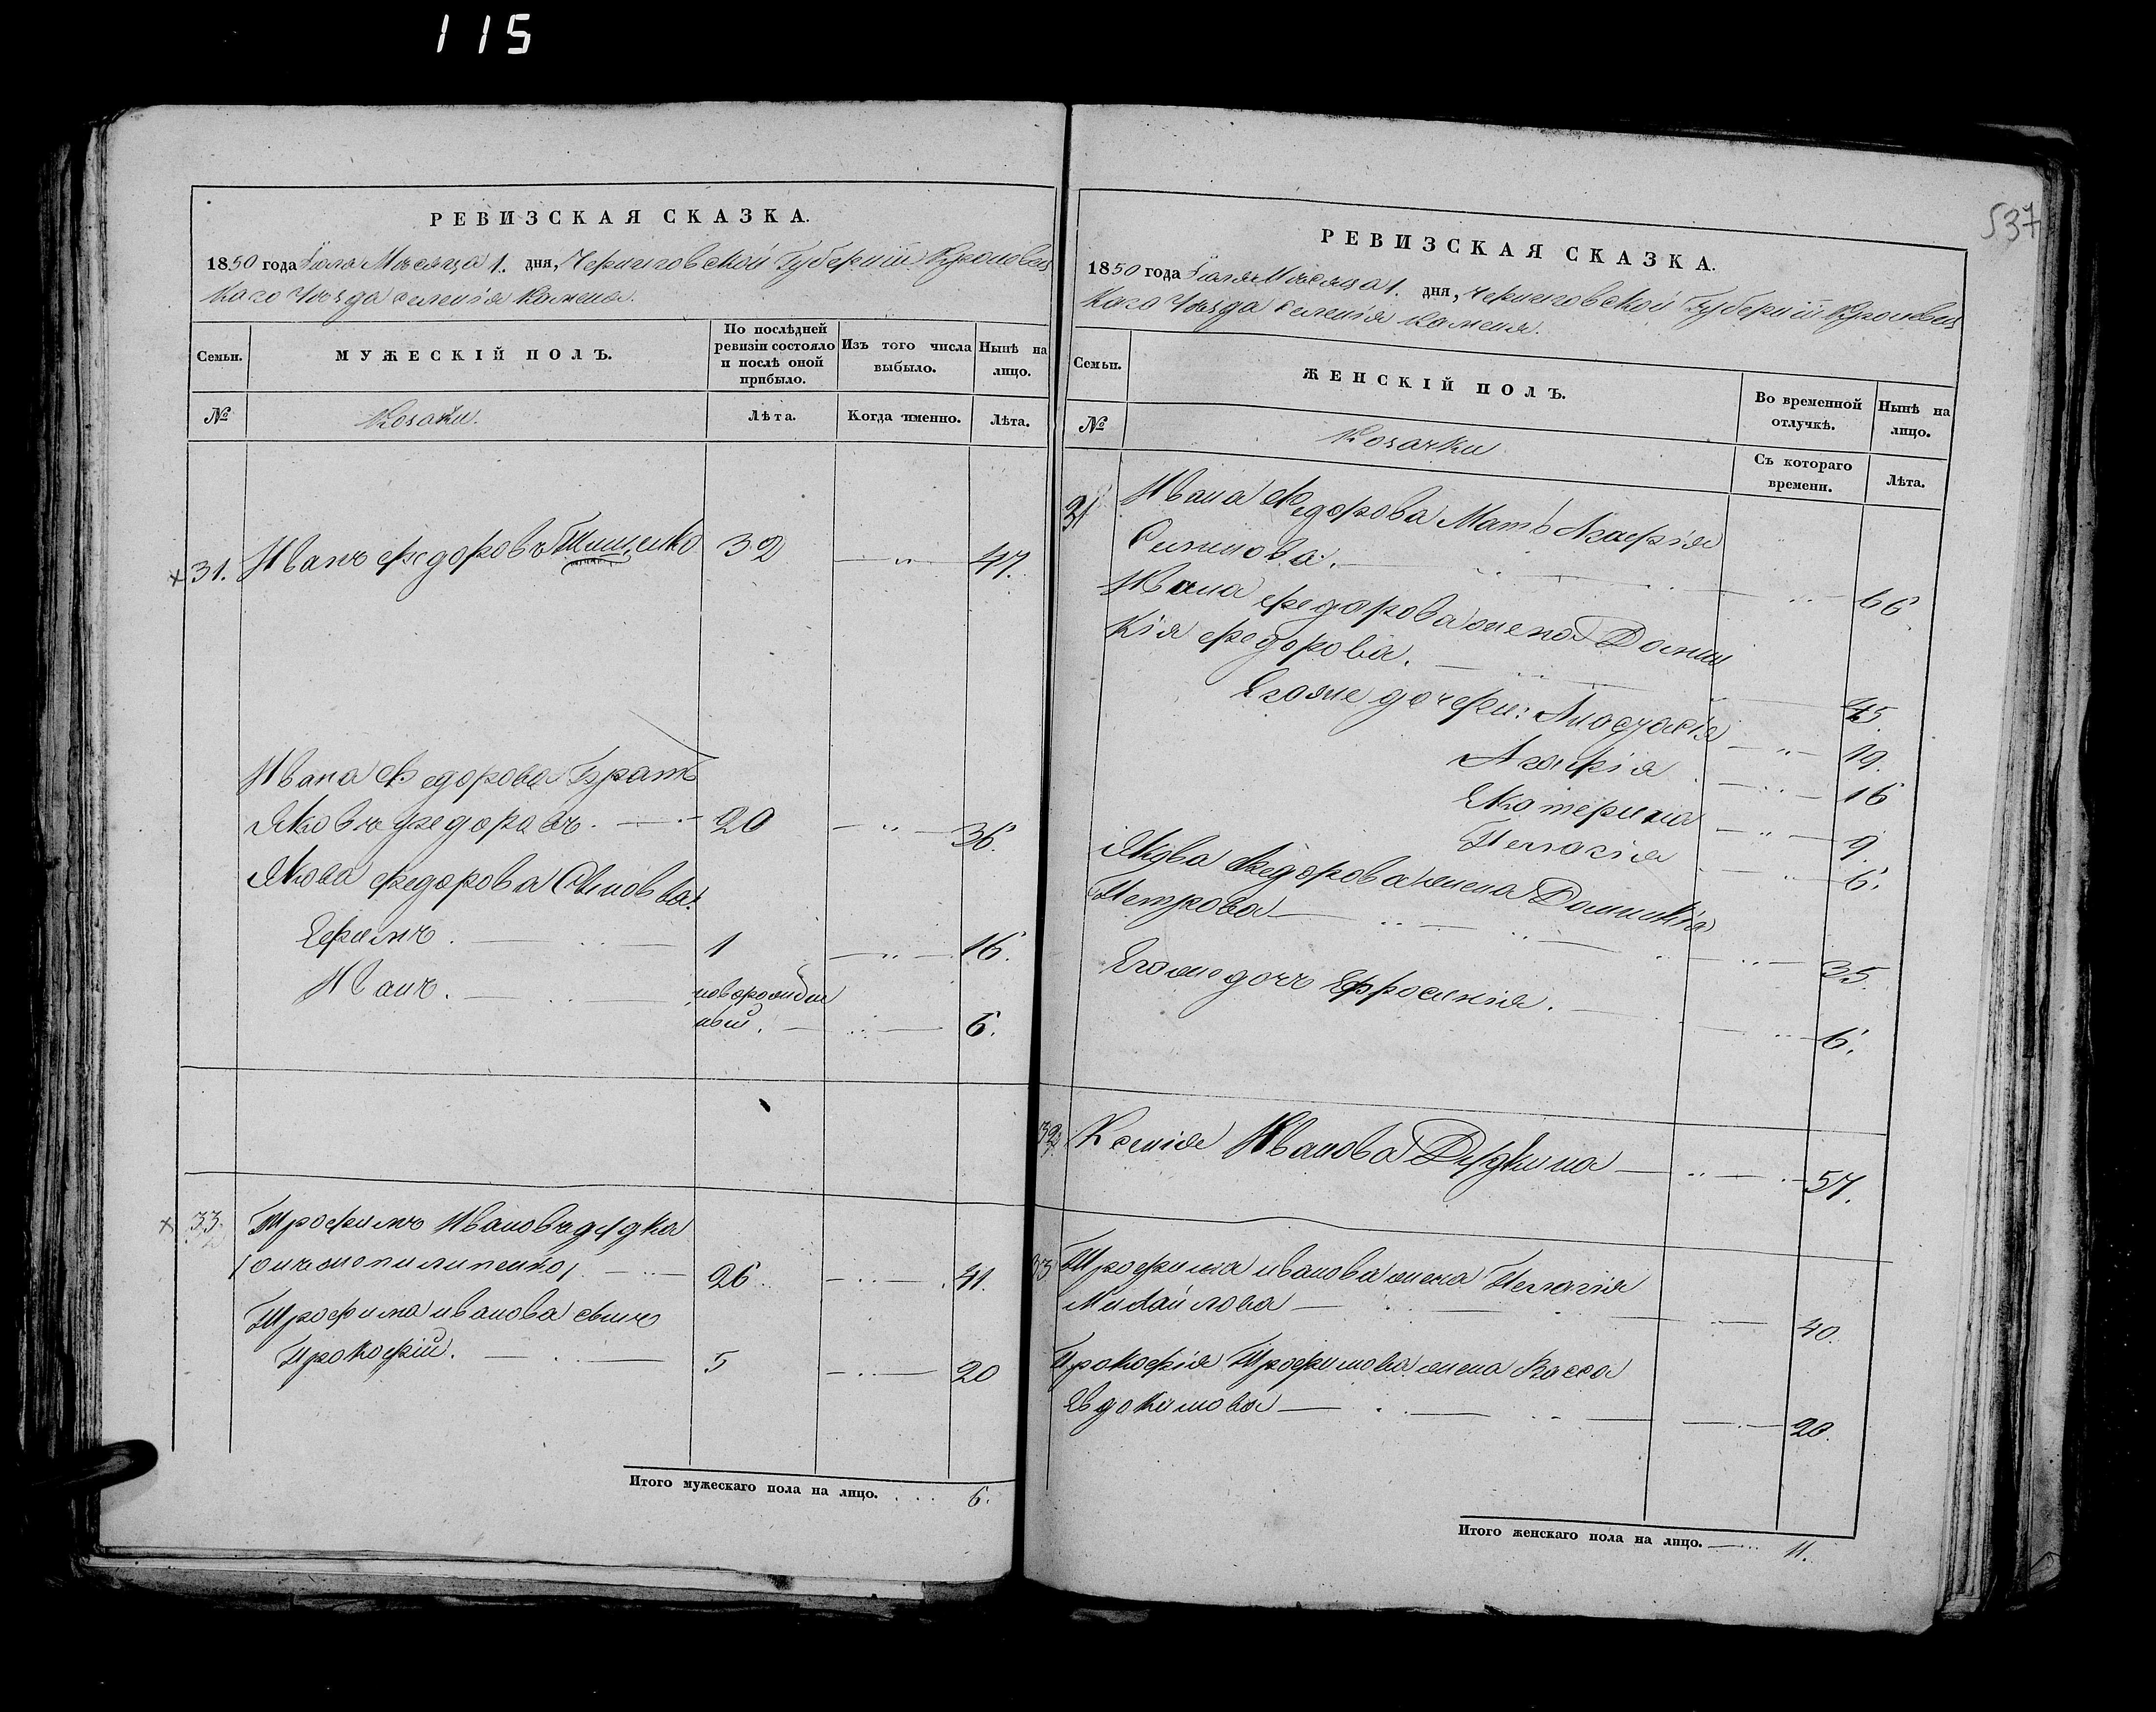 115
РЕВИЗСКАЯ СКАЗКА.
1850 года Іюля Мѣсяца 1. дня, Черниговской Губерніи Кролевец
каго Уѣзда селенія Каменя.
Семьи.
МУЖЕСКІЙ ПОЛЪ.
По послѣдней
ревизіи состояло
и послѣ оной
прибыло.
Изъ того числа
выбыло.
Нынѣ на
лицо.
№
Козаки.
Лѣта.
Когда именно.
Лѣта.
31. Иванъ Федоровъ Тищенко 32 — „ — 47.
Ивана Федорова Братъ
Яковъ Федоровъ. — „ — 20 — „ — 36.
Якова Федорова Сыновья:
Ефимъ. — „ — 1 — „ — 16.
Иванъ. — „ новорожден
ный. — „ — 6.
33. Трофимъ Ивановъ дудка
/ онъ же пилипенко /. — „ — 26 — „ — 41.
Трофима иванова сынъ
Прокофій. — „ — 5 — „ — 20
Итого мужескаго пола на лицо. . . . . 6.
537
РЕВИЗСКАЯ СКАЗКА.
1850 года Іюля Мѣсяца 1. дня, Черниговской Губерніи Кролевец
каго Уѣзда селенія Каменя.
Семьи.
ЖЕНСКІЙ ПОЛЪ.
Во временной
отлучкѣ.
Нынѣ на
лицо.
№
Козачки
Съ котораго
времени.
Лѣта.
31 Ивана Федорова Мать Агафія
— „ — 66.
Ивана Федорова жена Домни
кія Федорова. — „ — 45
Егоже дочери: Анастасія — „ — 19.
Агафія — „ — 16
Екатерина — „ — 9.
Пелагія — „ — 6.
Якова Федорова жена Домникія
Петрова — „ — 35.
Егоже дочь Ефросинія. — „ — 6.
32 Ксенія Иванова Дудкина — „ — 57.
33 Трофима иванова жена Пелагія
Михайлова — „ — 40.
Прокофія Трофимова жена Васса
Евдокимова — „ — 20.
Итого женскаго пола на лицо. — 11.